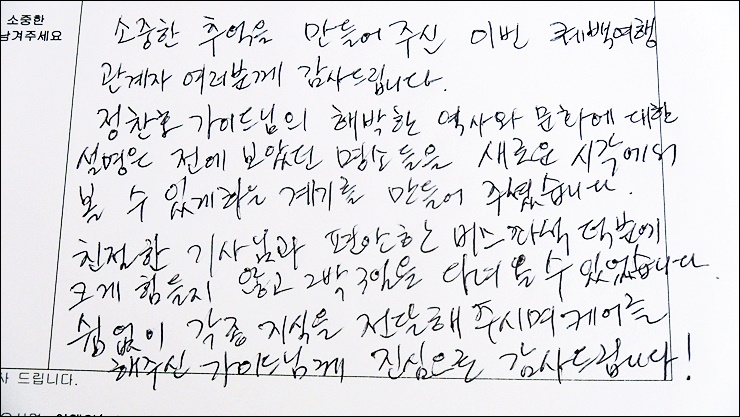 소중한
남겨주세요
소중한 추억을 만들어 주신 이번 태백여행
관계자 여러분께 감사드립니다.
정찬호 가이드님의 해박한 역사와 문화에 대한
설명은 전에 보았던 명소들을 새로운 시각에서
볼 수 있게하는 계기를 만들어 주셨습니다.
친절한 기사님과 편안한 버스 좌석 덕분에
크게 힘들지 않고 2박 3일을 다녀 올 수 있었습니다.
쉼없이 각종 지식을 전달해 주시며 케어를
해주신 가이드님께 진심으로 감사드립니다!
사 드립니다.